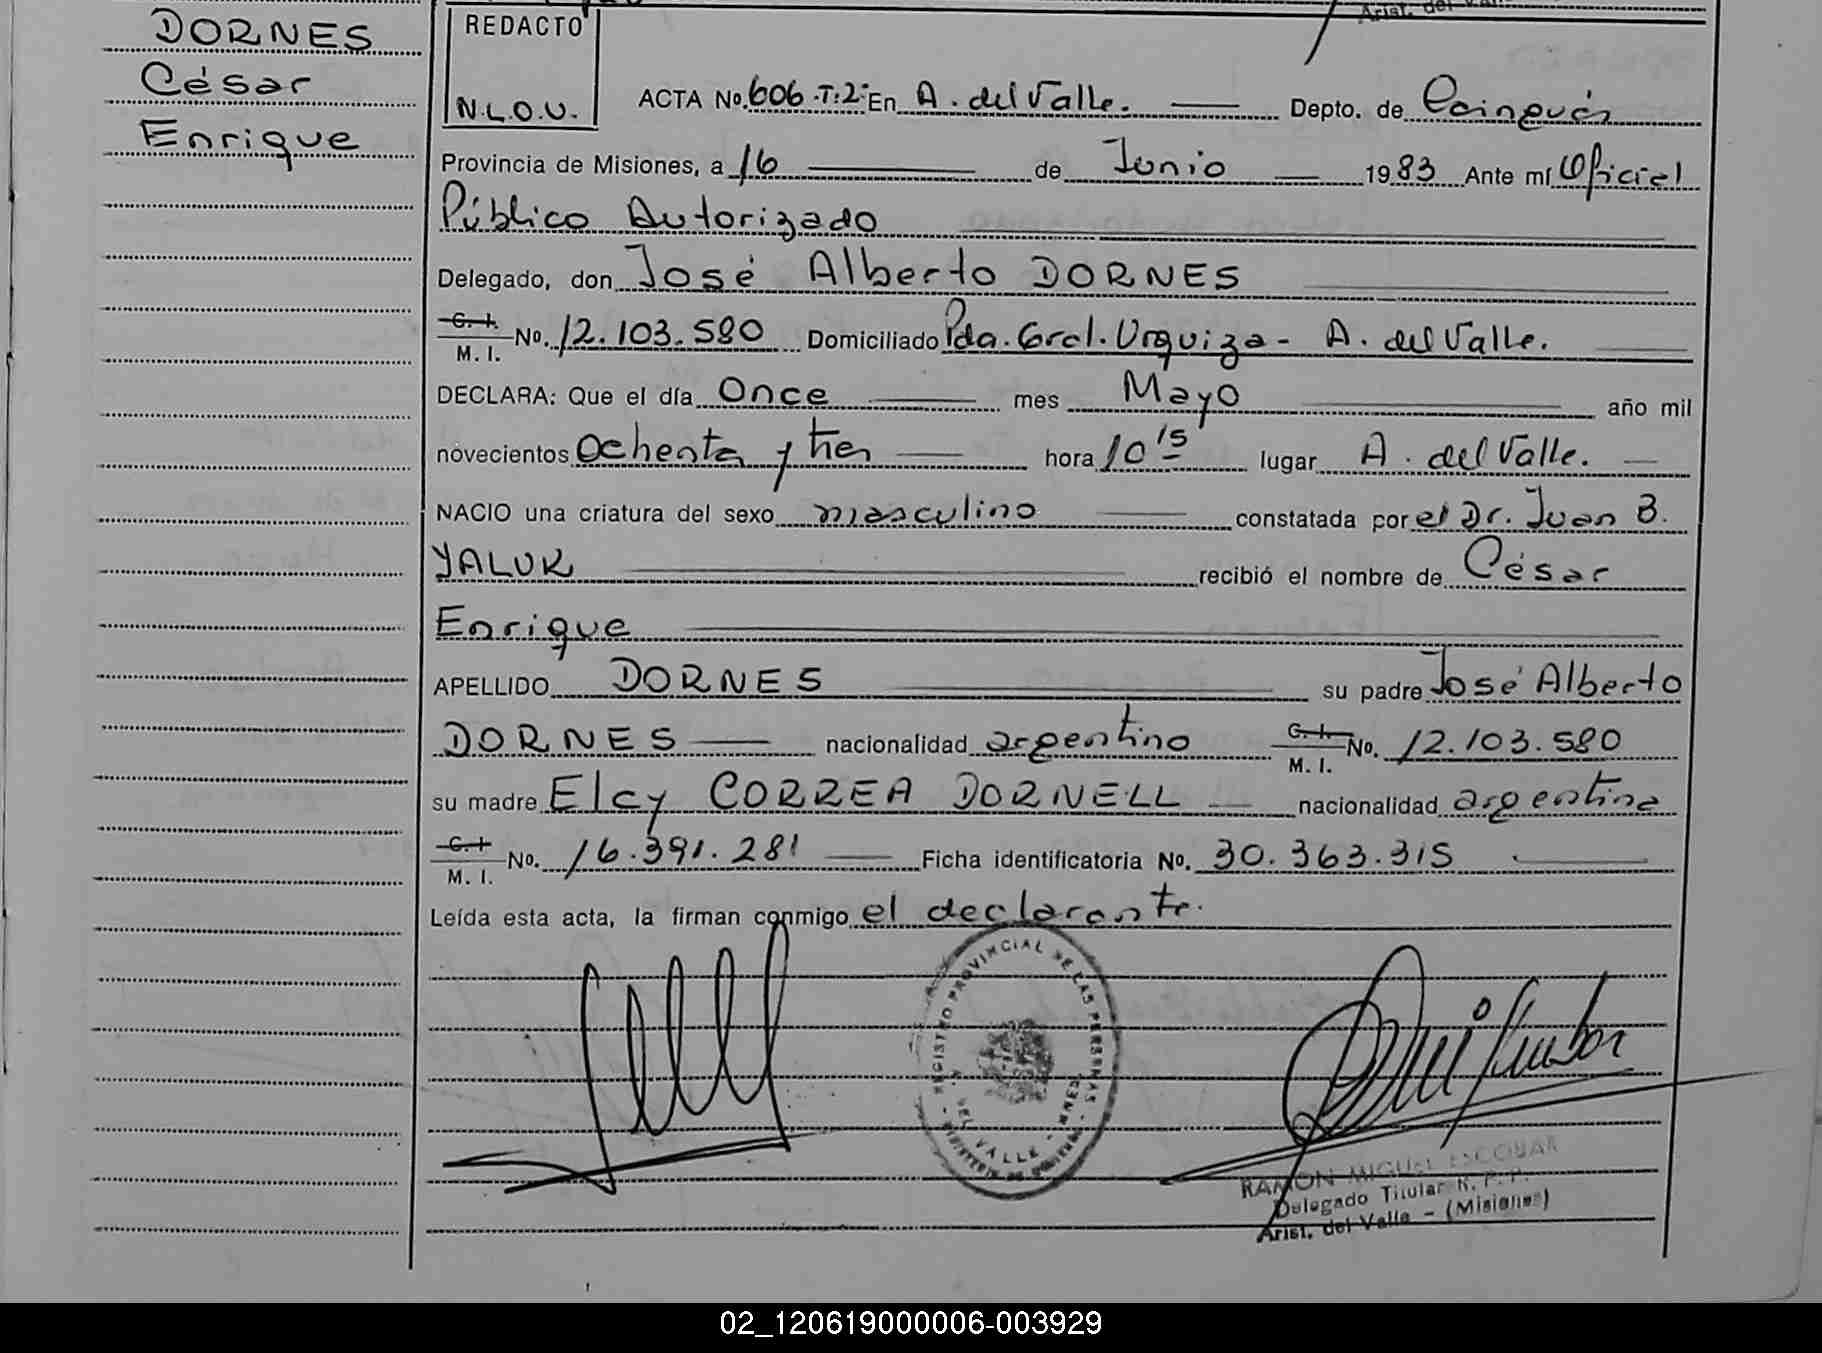 DORNES
César
Enrique
REDACTO
N.L.O.U.
Arist. del
ACTA No. 606.T:2º En A. del Valle. Depto. de Cainguás
Provincia de Misiones, a 16 de Junio 1983 Ante mí Oficial
Público Autorizado
Delegado, don José Alberto DORNES
C.I. M.I. No. 12.103.580 Domiciliado Pda. Gral. Urquiza - A. del Valle.
DECLARA: Que el día Once mes Mayo año mil
novecientos Ochenta y tres hora 10 15 lugar A. del Valle.
NACIO una criatura del sexo masculino constatada por el Dr. Juan B.
YALUK recibió el nombre de César
Enrique
APELLIDO DORNES su padre José Alberto
DORNES nacionalidad argentino C.I. M.I. No. 12.103.580
su madre Elcy CORREA DORNELL nacionalidad argentina
C.I. M.I. No. 16.391.281 Ficha identificatoria No. 30.363.315
Leída esta acta, la firman conmigo el declarante.
REGISTRO PROVINCIAL DE LAS PERSONAS
DEL VALLE
RAMON MIGUEL ESCOBAR
Delegado Titular R. P. P.
Arist. del Valle - (Misiones)
02_120619000006-003929